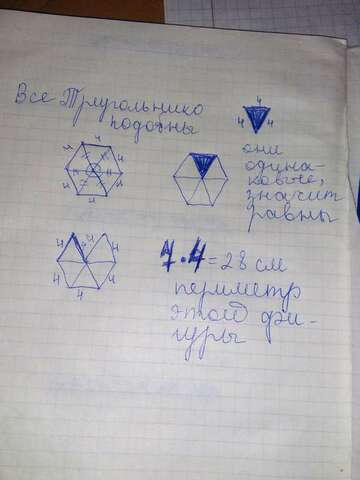 Все Триугольнико
подобны
4
4 4
они
одина-
ковые,
значит
равны
4
4 4
4 4
4
4 4
4 4
4 4
4
7·4=28 см
периметр
этой фи-
гуры